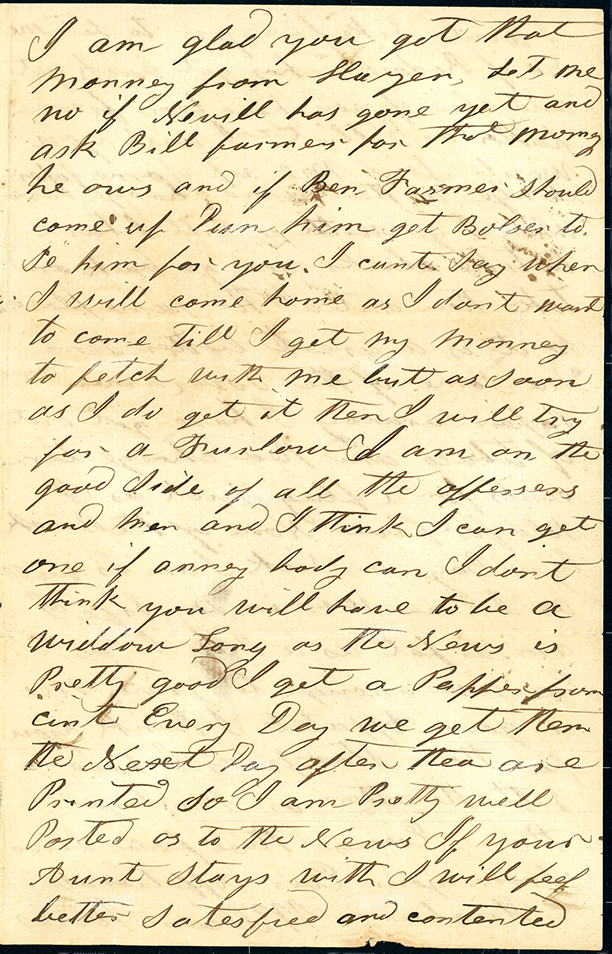 I am glad you got that
Monney from Hayen, Let me
no if Nevill has gone yet and
ask Bill farmer for that money
he ows and if Ben Farmer should
come up Dun him get Bolser to
Se him for you. I cant Say when
I will come home as I dont want
to come till I get my Monney
to fetch with me but as Soon
as I do get it then I will try
for a Furlow I am on the
good Side of all the offersers
and Men and I think I can get
one if anney body can I dont
think you will have to be a
widdow Long as the News is
Pretty good I get a Papper from
cint Every Day we get them
the Next Day after thea are
Printed So I am Pretty well
Posted as to the News If your
Aunt Stays with I will feel
better Satesfied and contented